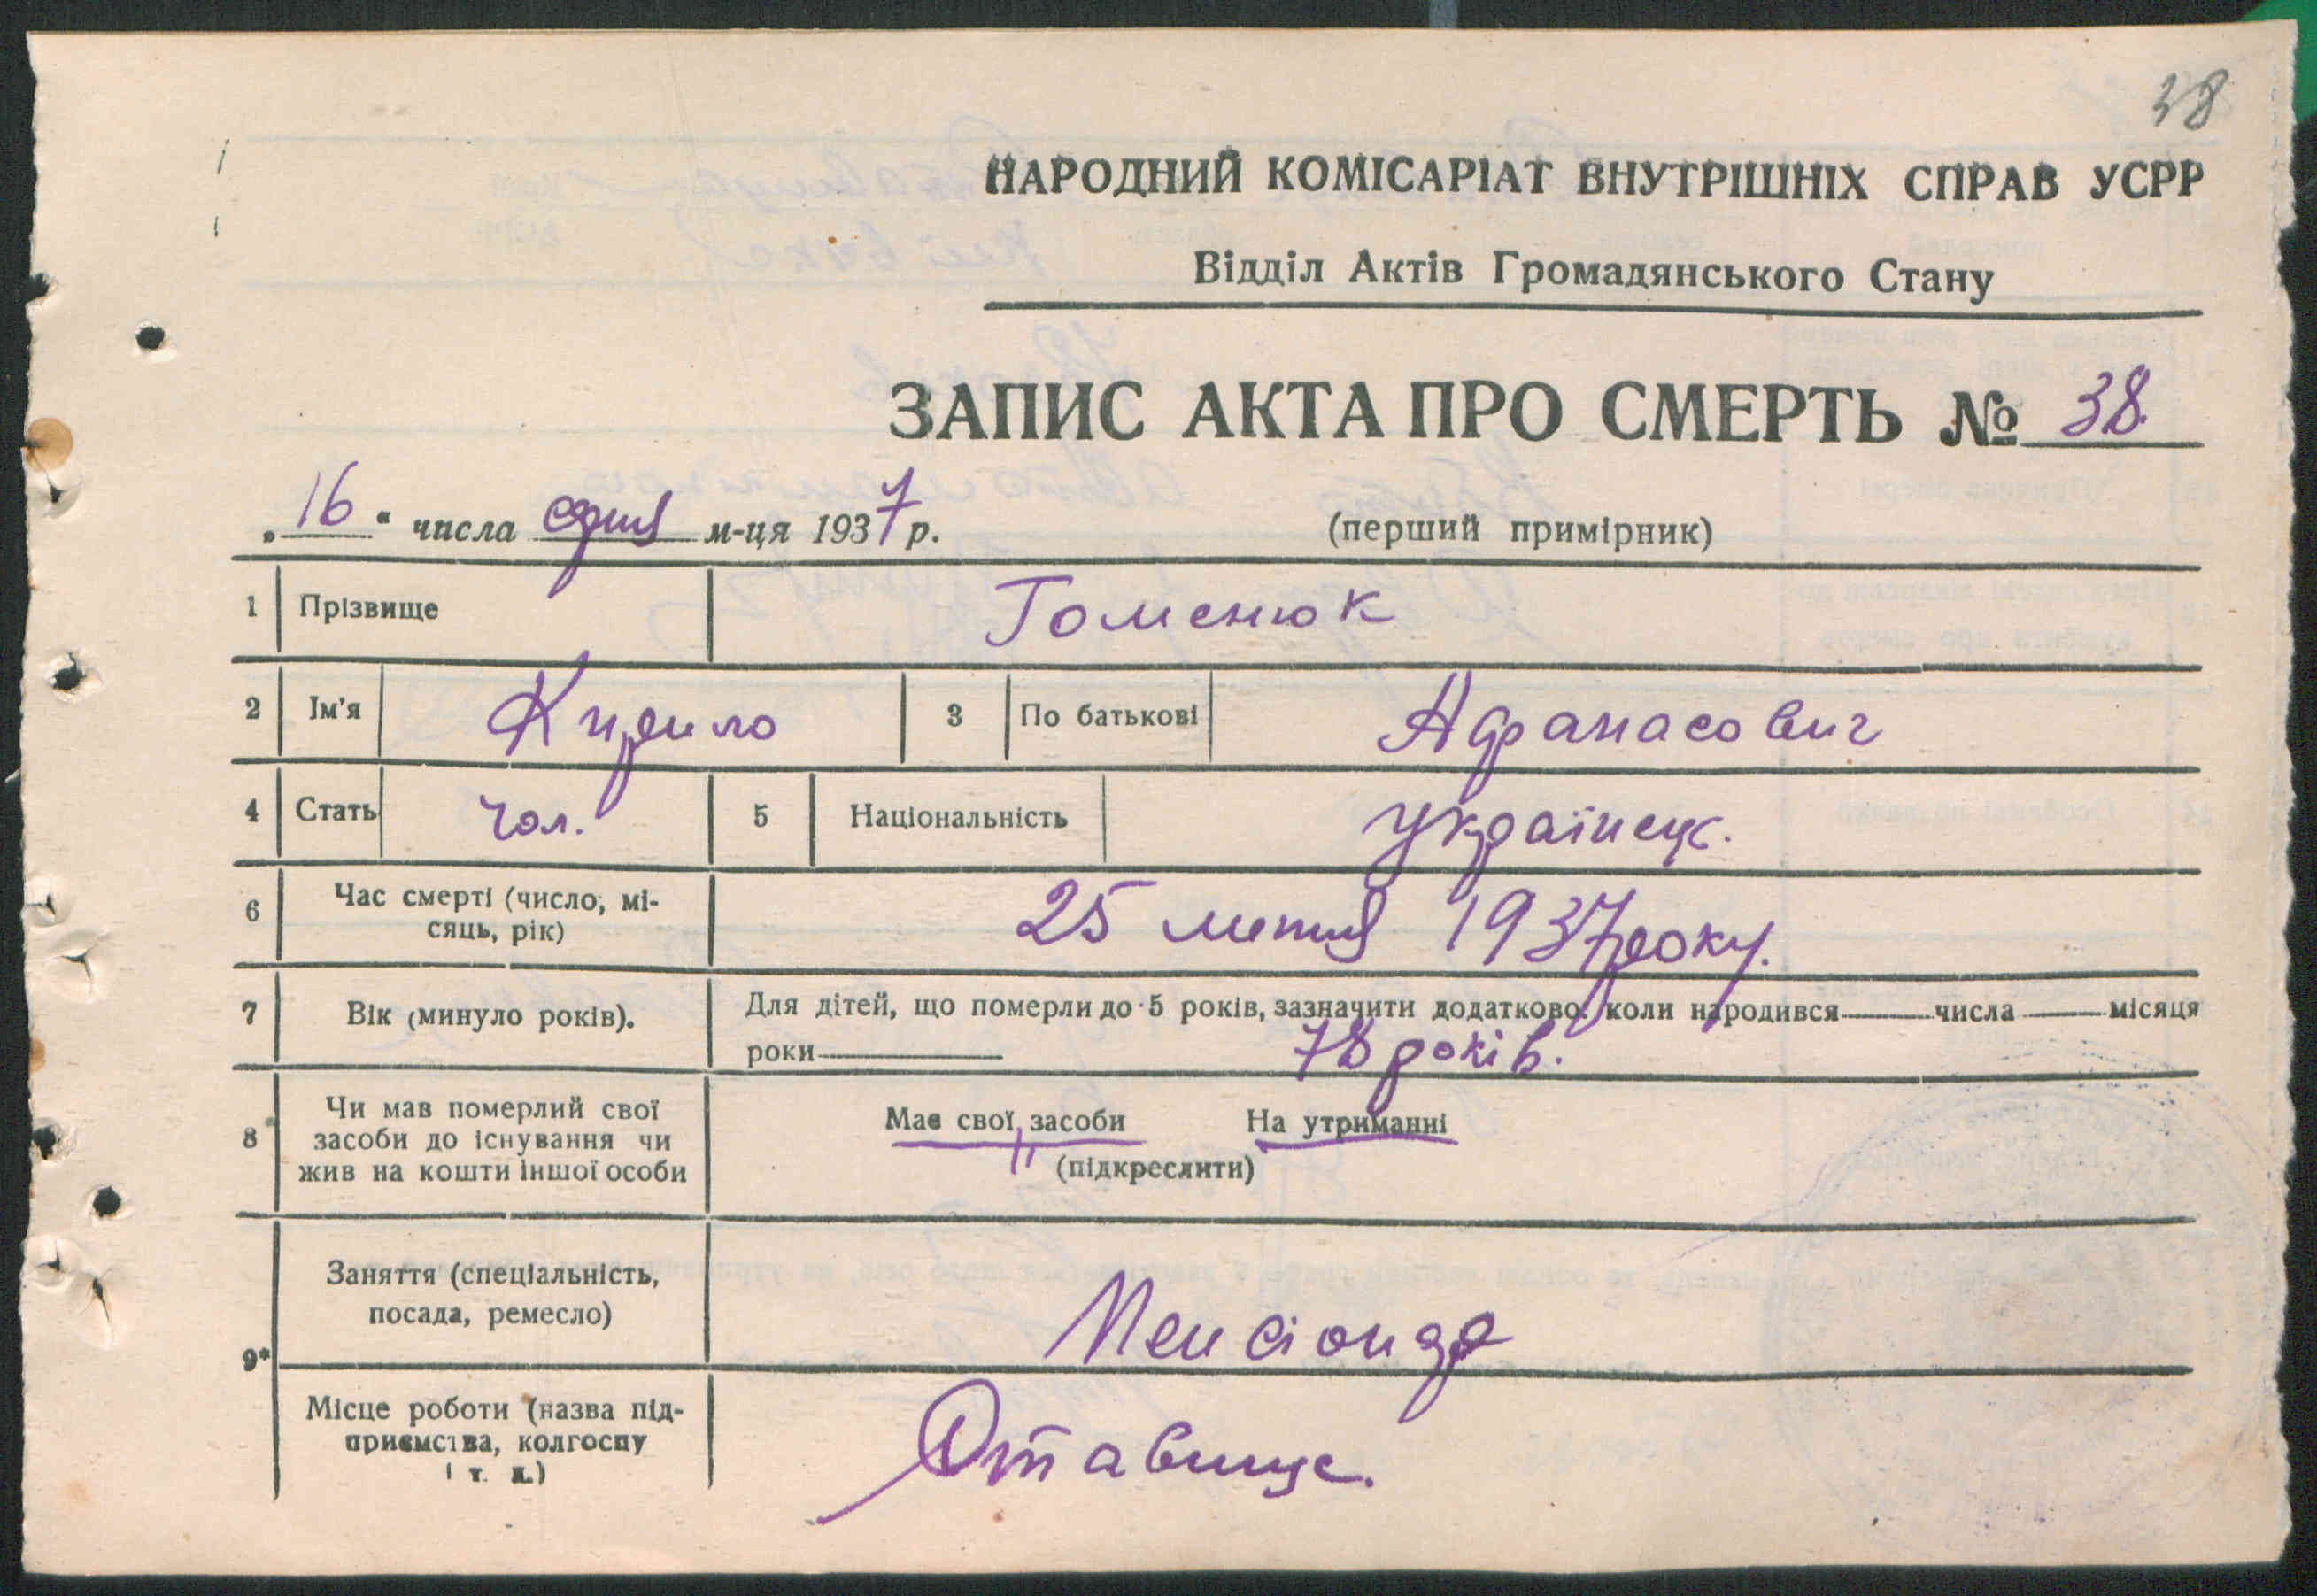 38
НАРОДНИЙ КОМІСАРІАТ ВНУТРІШНІХ СПРАВ УСРР
Відділ Актів Громадянського Стану
ЗАПИС АКТА ПРО СМЕРТЬ № 38
„16“ числа м-ця 1937 р. (перший примірник)
1 Прізвище Гоменюк
2 Ім'я Кирило 3 По батькові Афанасович
4 Стать Чол. 5 Національність Українец.
6 Час смерті (число, мі-
сяць, рік) 25 1937 року.
7 Вік (минуло років). Для дітей, що померли до 5 років, зазначити додатково: коли народився числа місяця
роки 78 років.
8 Чи мав померлий свої
засоби до існування чи
жив на кошти іншої особи
Має свої засоби На утриманні
(підкреслити)
9* Заняття (спеціальність,
посада, ремесло) Пенсіонер
Місце роботи (назва під-
приємства, колгоспу
і т. д.) Ставище.